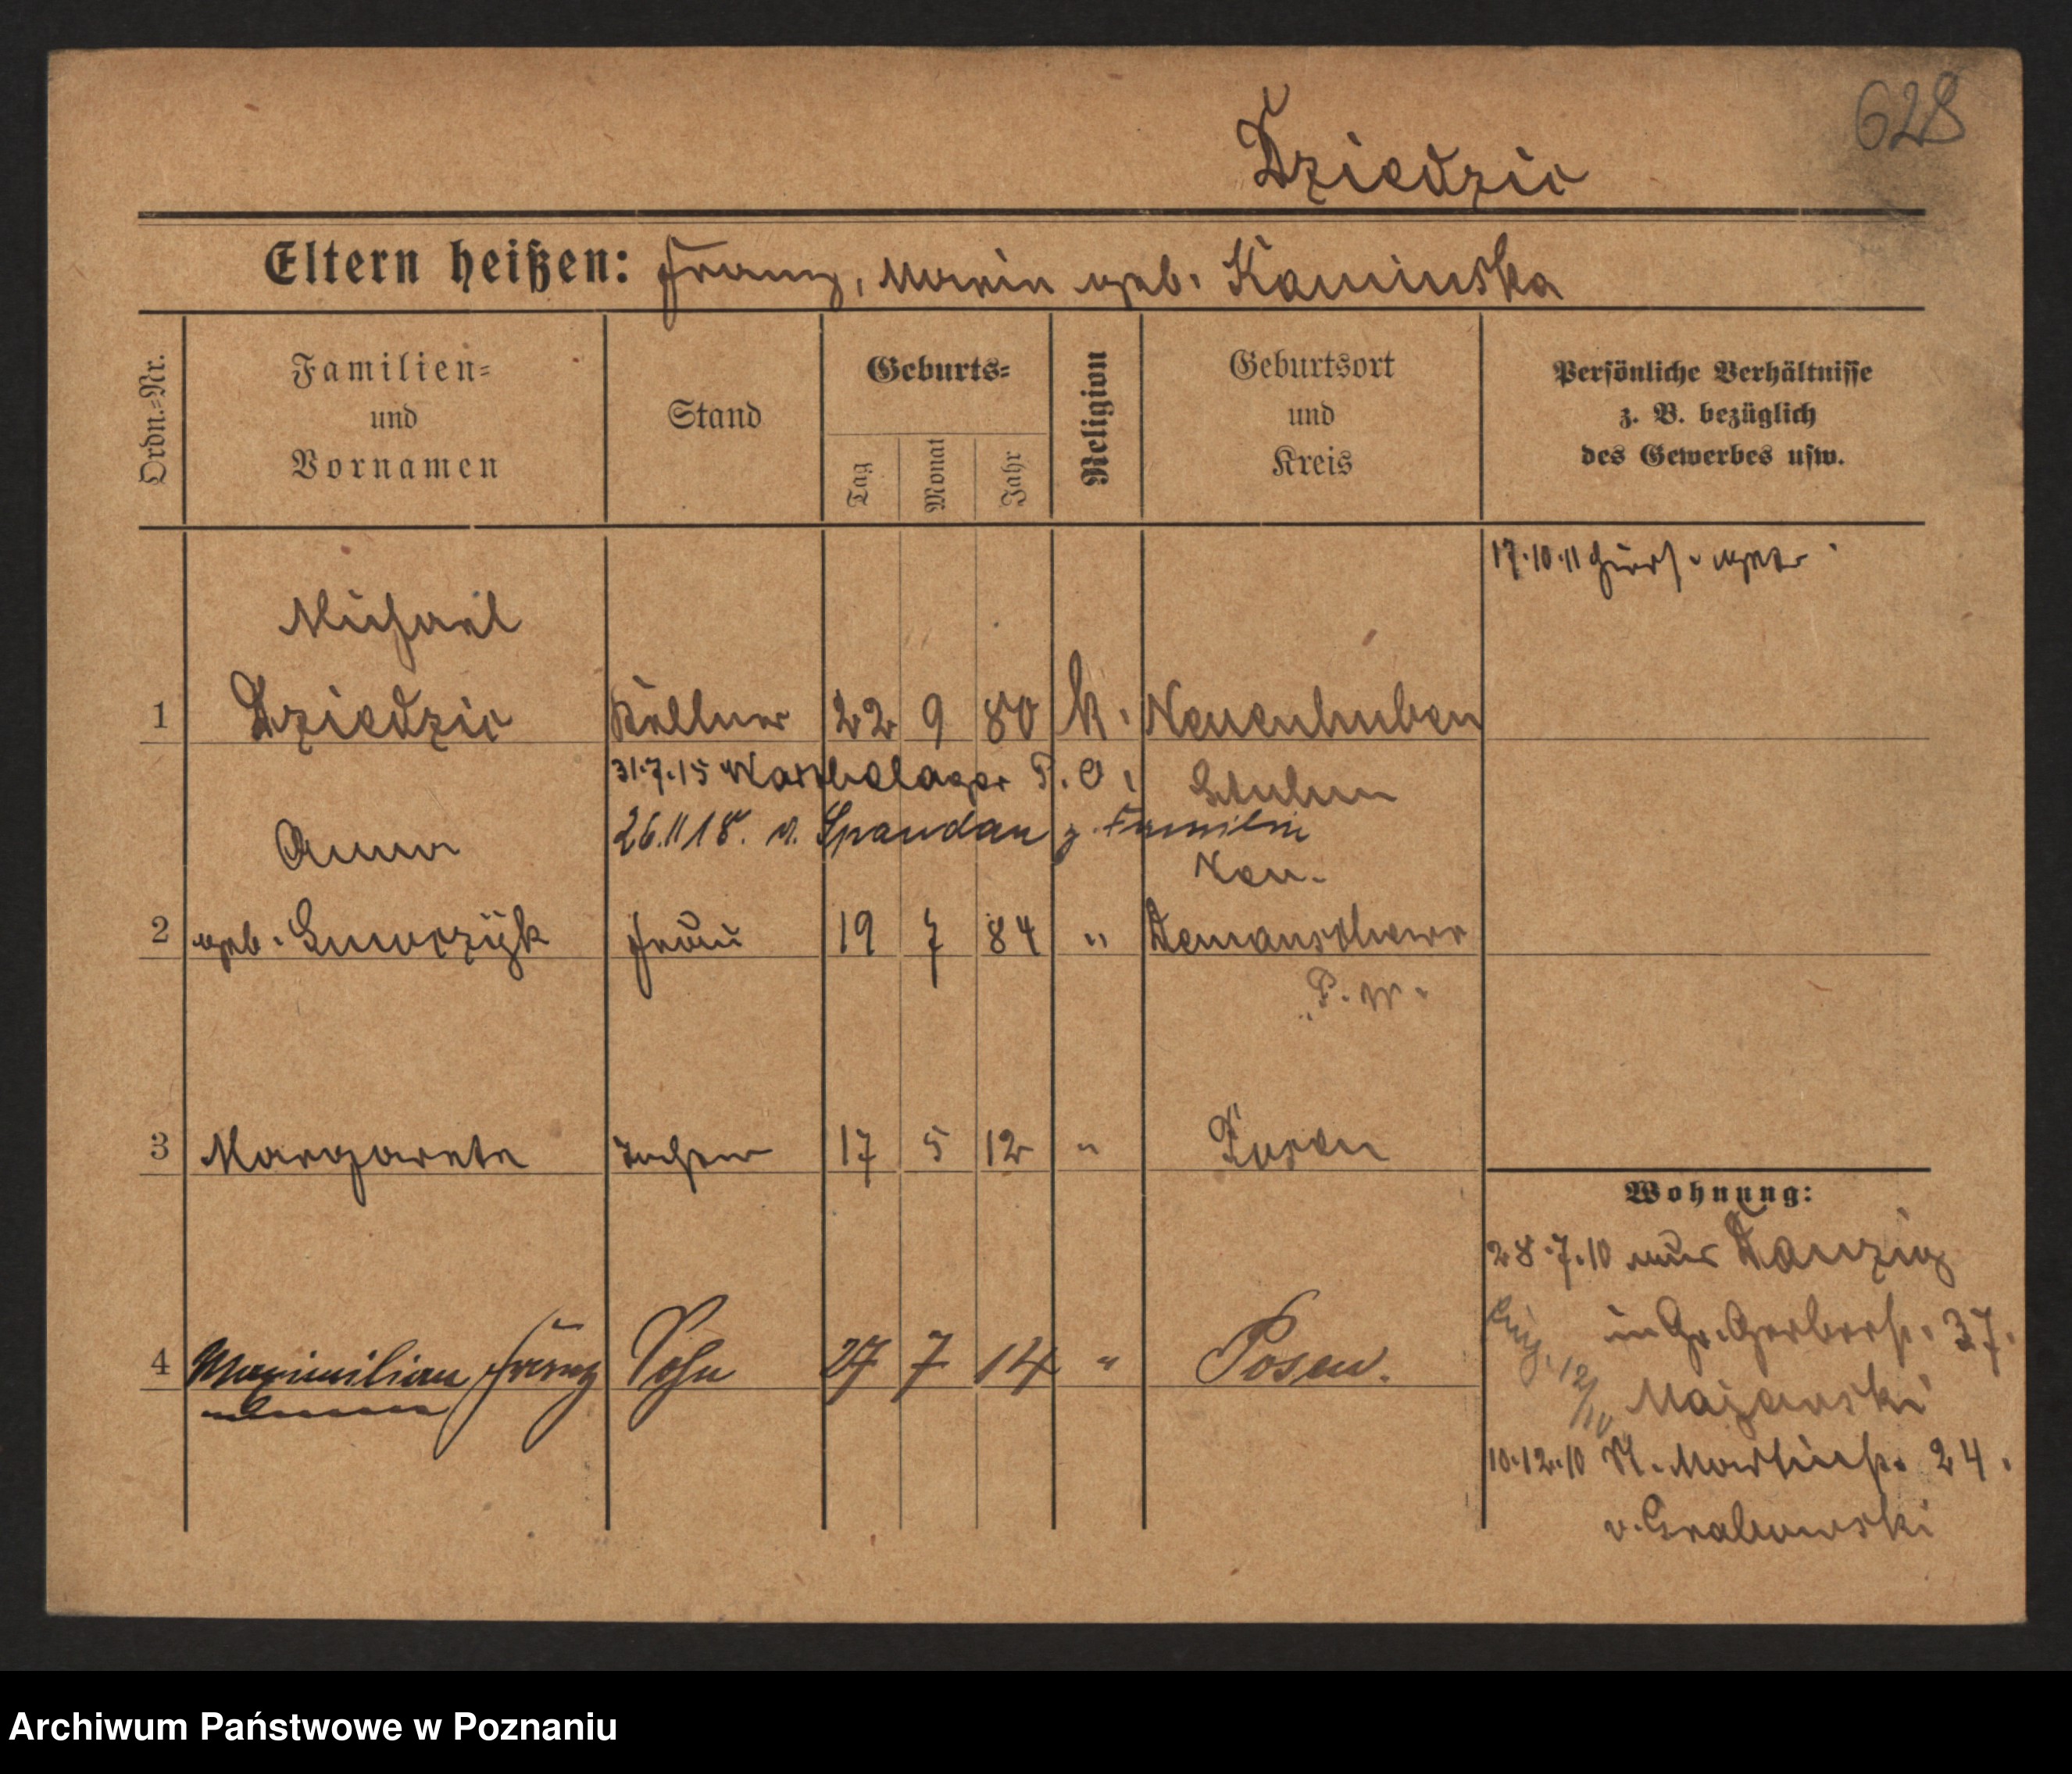 628
Dziedzic
Eltern heißen: Franz, Marie geb. Kaminska
Ordn.-Nr.
Familien-
und
Vornamen
Stand
Geburts-
Tag
Monat
Jahr
Religion
Geburtsort
und
Kreis
Persönliche Verhältnisse
z. B. bezüglich
des Gewerbes usw.
17.10.11
Michael
1 Dziedzic Kellner 22 9 80 k. Neuenhuben
31.7.15 P. O.
Stuhm
26.11 18. v. Spandau z. Familie
Anna
2 geb. Frau 19 7 84 "
P. W.
3 Margarete Tochter 17 5 12 " Posen
Wohnung:
28.7.10 aus Danzig
in Gr. Gerberstr. 37.
4 Maximilian Franz Sohn 27 7 14 " Posen.
Majewski
10.12.10 St. Martinstr. 24.
v. Grabowski
Archiwum Państwowe w Poznaniu